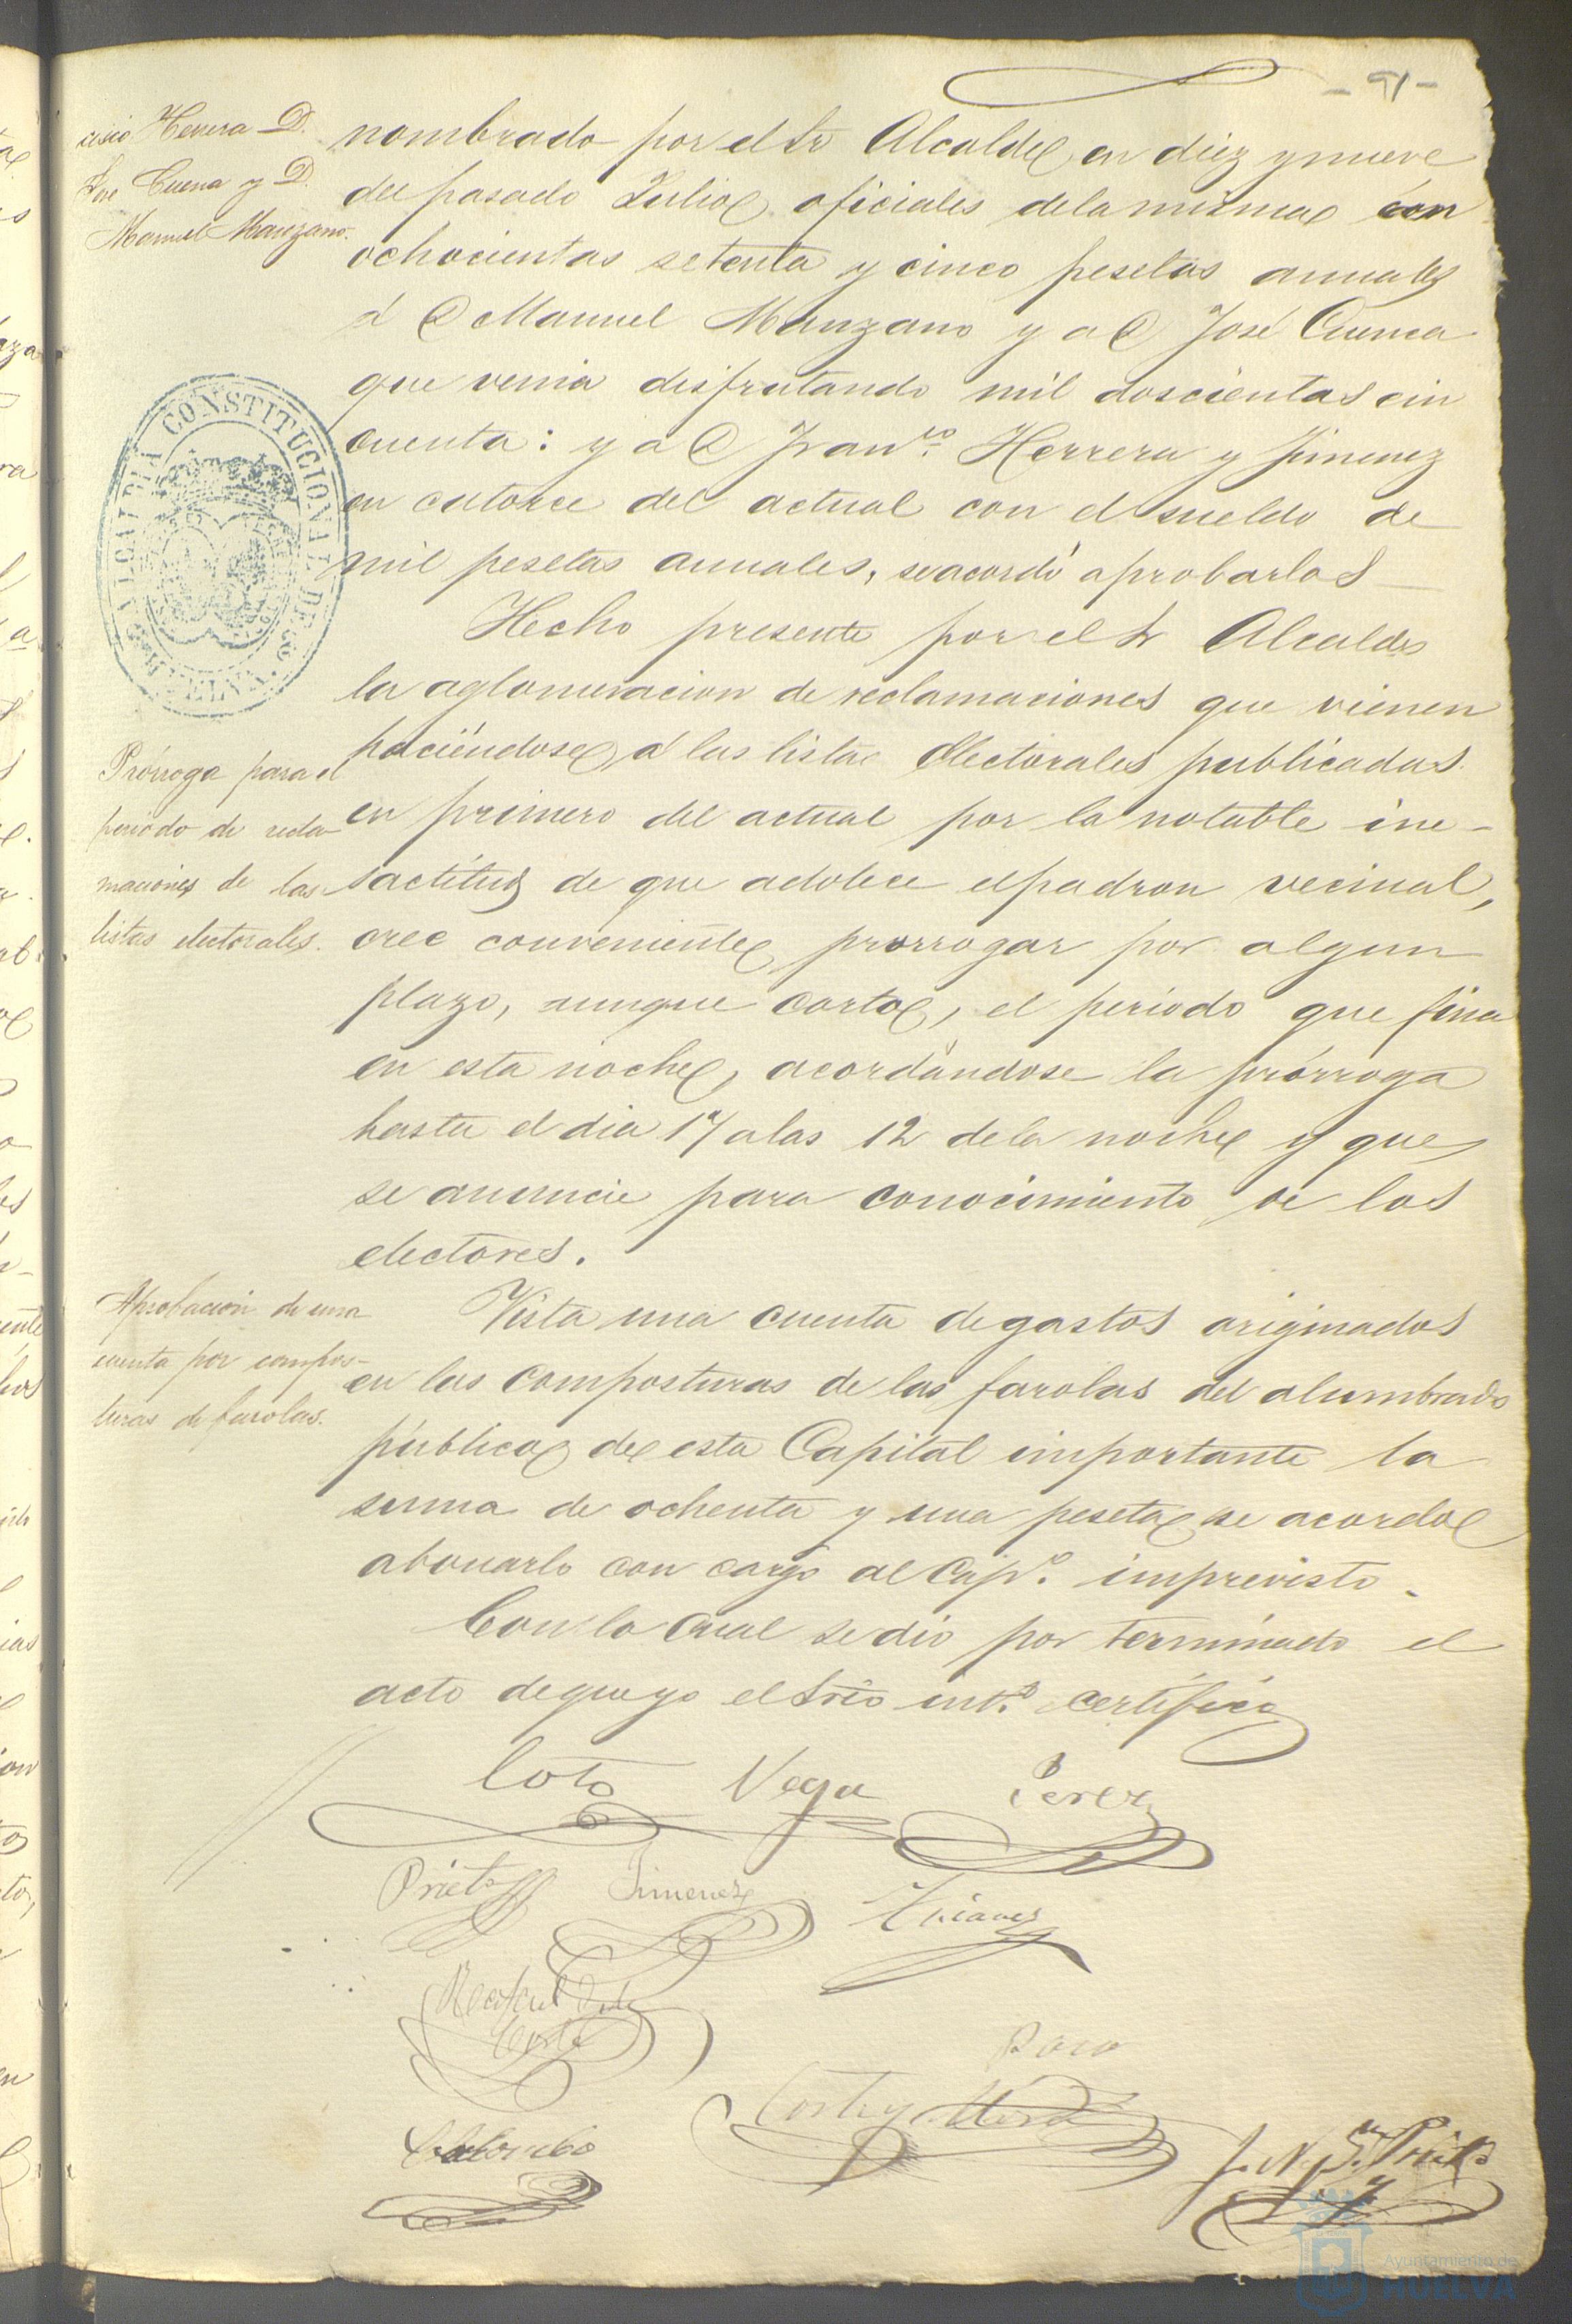 - 91 -
cisco Herrera D.
José Cuena y D.
Manuel Manzano.
nombrado por el Sr Alcalde en diez y nueve
del pasado Julio, oficiales de la misma con
ochocientas setenta y cinco pesetas anuales
á D Manuel Manzano y a D José Cuenca
que venia disfrutando mil doscientas cin
cuenta: y a D Franco. Herrera y Jimenez
en catorce del actual con el sueldo de
mil pesetas anuales, se acordó aprobarlos
ALCALDIA CONSTITUCIONAL DE HUELVA
Hecho presente por el Sr Alcalde
la aglomeracion de reclamaciones que vienen
haciéndose á las listas electorales publicadas
en primero del actual por la notable ine-
sactitud de que adolece el padron vecinal,
cree conveniente prorrogar por algun
plazo, aunque corto, el periodo que fina
en esta noche, acordándose la prórroga
hasta el dia 17 a las 12 de la noche y que
se anuncie para conocimiento de los
electores.
Prórroga para el
periodo de recla-
maciones de las
listas electorales.
Aprobacion de una
cuenta por compos-
turas de farolas.
Vista una cuenta de gastos originados
en las composturas de las farolas del alumbrado
público de esta Capital importante la
suma de ochenta y una peseta se acordó
abonarlo con cargo al Capo. imprevisto.
Con lo cual se dió por terminado el
acto de que yo el Srio into. certifico
Coto Vega Perez
Prieto Jimenez
J. N. Prieto
Ayuntamiento de
HUELVA